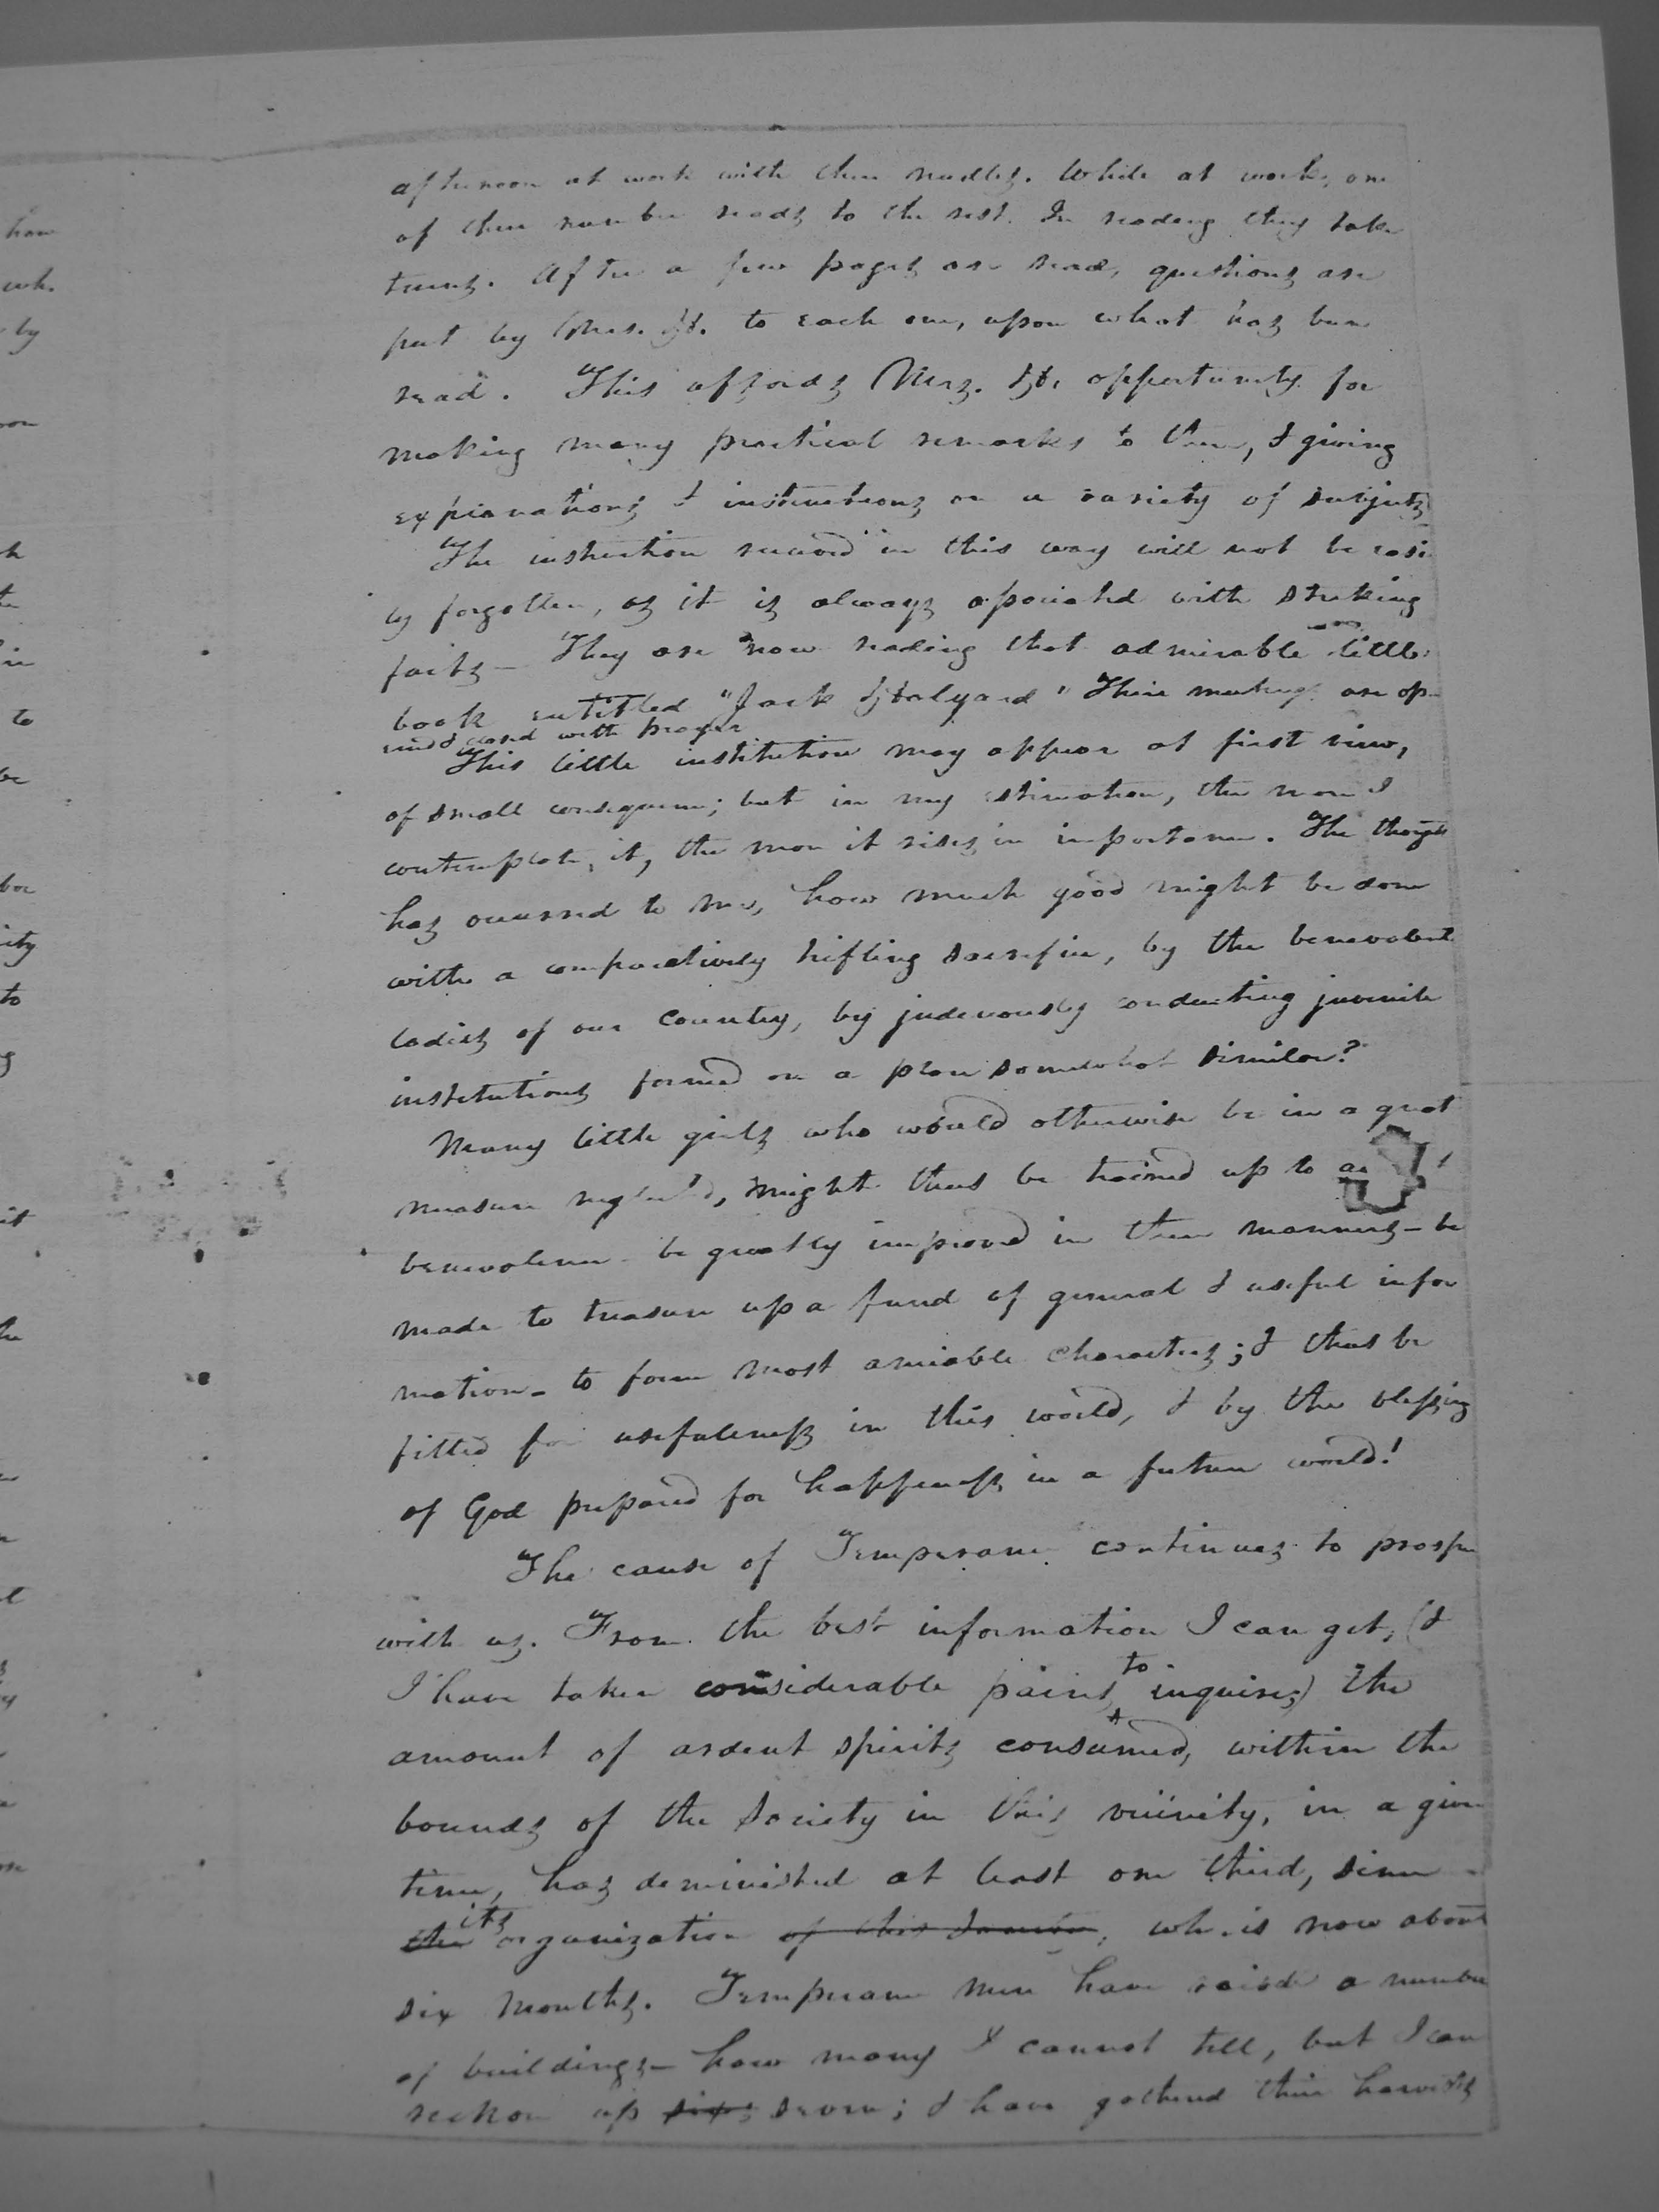 afternoon at work with their needles. While at work, one
of their number reads to the rest. In reading they take
turns. After a few pages are read, questions are
put by Mrs. H. to each one, upon what has been
read. This affords Mrs. H. opportunity for
making many practical remarks to them, & giving
explanations & instructions on a variety of subjects
The instruction received in this way will not be easi
ly forgotten, as it is always associated with striking
facts – They are now reading that admirable little
book entitled "Jack Halyard" Their meetings are op-
ened & closed with prayer
This little institution may appear at first view,
of small consequence; but in my estimation, the more I
contemplate it, the more it rises in importance. The thought
has occurred to me, how much good might be done
with a comparatively trifling sacrifice, by the benevolent
ladies of our country, by judiciously conducting juvenile
institutions formed on a plan somewhat similar?
Many little girls who would otherwise be in a great
measure neglected, might thus be trained up to
benevolence – be greatly improved in their manners – be
made to treasure up a fund of general & useful infor
mation – to form most amiable characters; & thus be
fitted for usefulness in this world, & by the blessing
of God prepared for happiness in a future world!
The cause of Temperance continues to prosper
with us. From the best information I can get, (&
I have taken considerable pains to inquire;) the
amount of ardent spirits consumed, within the
bounds of the Society in this vicinity, in a given
time, has deminished at least one third, since
the its organization of this Society, wh. is now about
six months. Temperance men have raised a number
of buildings – how many I cannot tell, but I can
reckon up six seven; & have gathered their harvests
how
wh.
by
to
be
ity
to
it